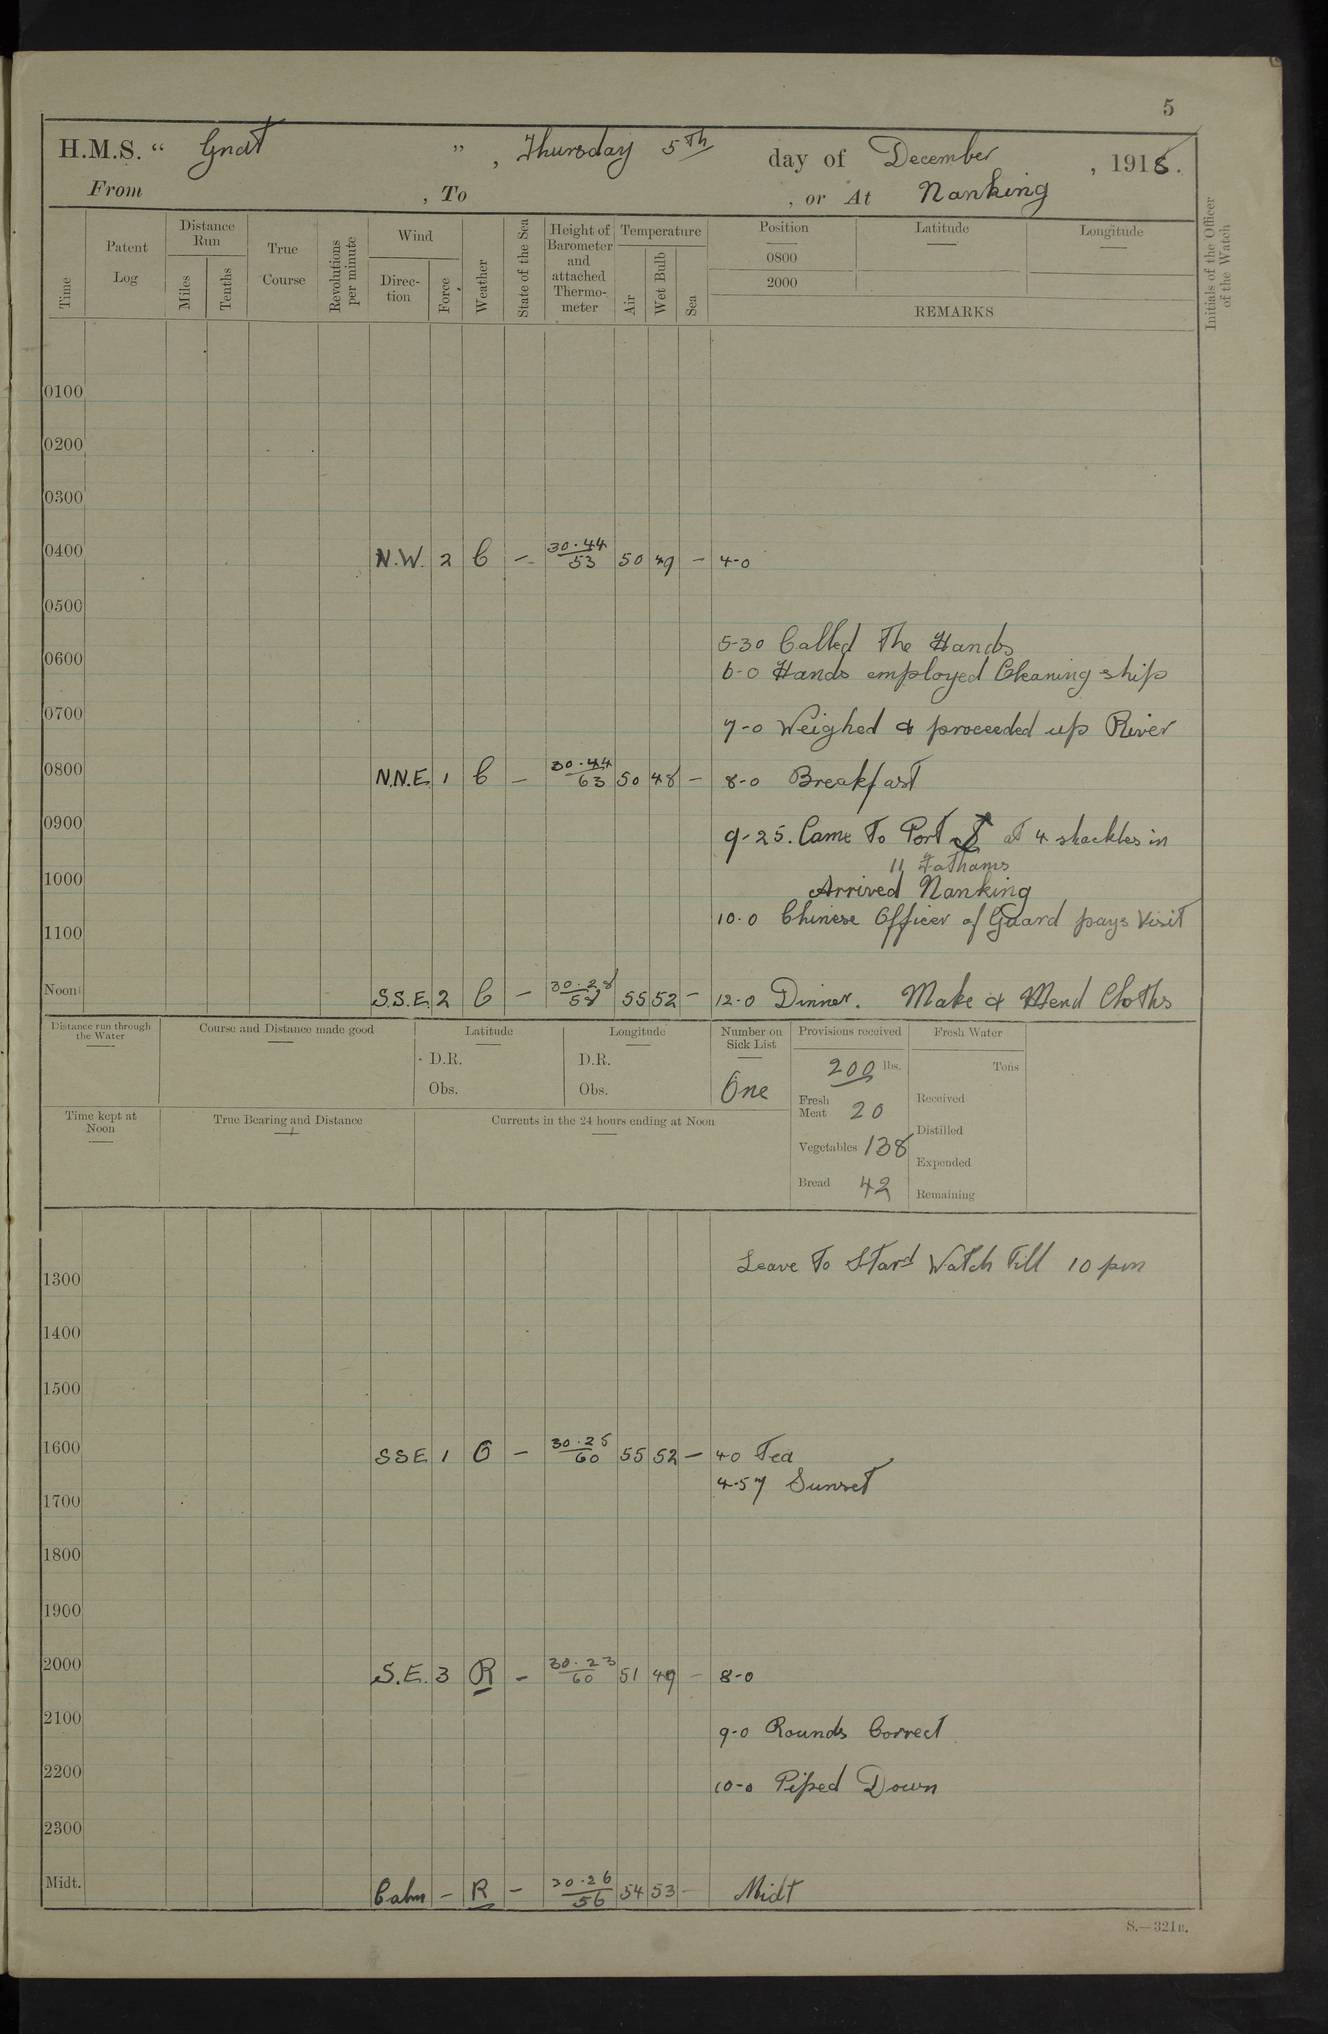 5
H.M.S. “ Gnat ” , Thursday 5th day of December , 1918.
From , To , or At Nanking
Time
Patent Log
Distance Run
Miles
Tenths
True Course
Revolutions per minute
Wind
Direc-tion
Force
Weather
State of the Sea
Height of Barometer and attached Thermo-meter
Temperature
Air
Wet Bulb
Sea
Position
0800
2000
Latitude
Longitude
REMARKS
Initials of the Officer of the Watch
0100
0200
0300
0400 N.W. 2 C – 30.44/53 50 49 – 4-0
0500
5-30 Called The Hands
0600
6-0 Hands employed Cleaning ship
0700
7-0 Weighed & proceeded up River
0800 N.N.E. 1 C – 30.44/63 50 48 – 8-0 Breakfast
0900
9-25. Came To Port ⚓ at 4 shackles in
11 Fathams
1000
Arrived Nanking
10.0 Chinese Officer of Guard pays Visit
1100
Noon S.S.E. 2 C – 30.28/58 55 52 – 12-0 Dinner. Make & Mend Cloths
Distance run through the Water
Course and Distance made good
Latitude
D.R.
Obs.
Longitude
D.R.
Obs.
Number on Sick List
One
Provisions received
200 lbs.
Fresh Meat 20
Vegetables 138
Bread 42
Fresh Water
Tons
Received
Distilled
Expended
Remaining
Time kept at Noon
True Bearing and Distance
Currents in the 24 hours ending at Noon
Leave To Stard Watch Till 10 pm
1300
1400
1500
1600 SSE 1 O – 30.25/60 55 52 – 4 0 Tea
4-57 Sunset
1700
1800
1900
2000 S.E. 3 R – 30.23/60 51 49 – 8-0
2100
9-0 Rounds Correct
2200
10-0 Piped Down
2300
Midt. Calm – R – 30.26/56 54 53 – Midt
S.—321B.